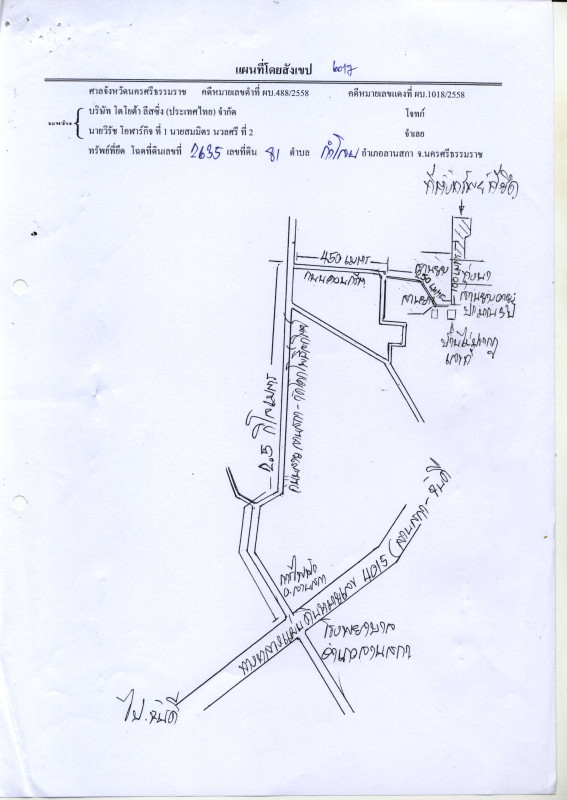 แผนที่โดยสังเขป
ศาลจังหวัดนครศรีธรรมราช คดีหมายเลขดำที่ ผบ.488/2558 คดีหมายเลขแดงที่ ผบ.1018/2558
ระหว่าง
บริษัท โตโยต้า ลีสซิ่ง (ประเทศไทย) จำกัด โจทก์
นายวิรัช โอฬาร์กิจ ที่ 1 นายสมมิตร นวลศรี ที่ 2 จำเลย
ทรัพย์ที่ยึด โฉนดที่ดินเลขที่ 2635 เลขที่ดิน 81 ตำบล กำโลน อำเภอลานสกา จ.นครศรีธรรมราช
450 เมตร
ถนนคอนกรีต
100 เมตร
2.5 กิโลเมตร
การไฟฟ้า
อ.ลานสกา
ทางหลวงแผ่นดินหมายเลข 4015 (ลานสกา - จันดี
โรงพยาบาล
อำเภอลานสกา
ไป.จันดี